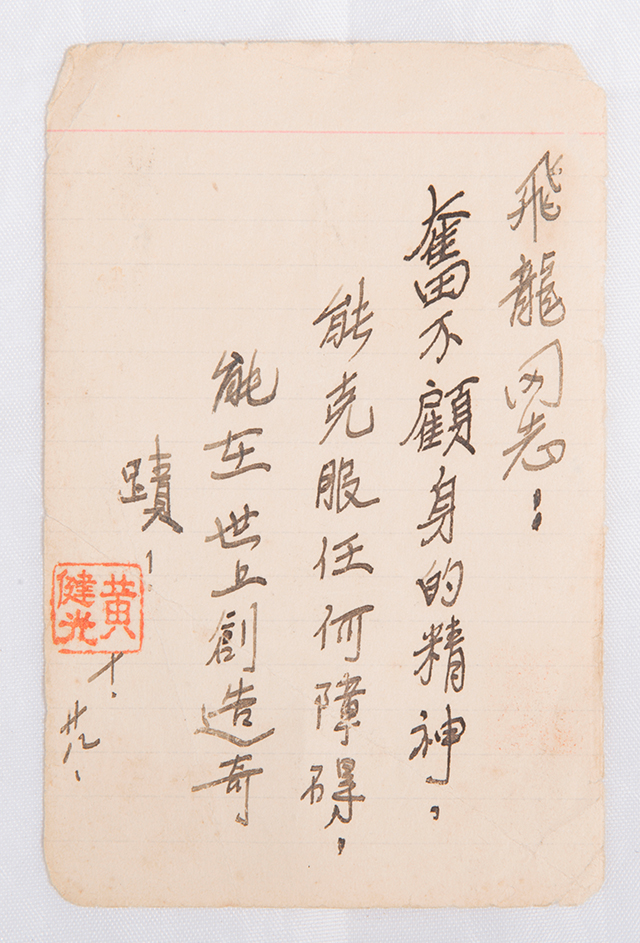 飛龍同志：
奮不顧身的精神，
能克服任何障碍，
能在世上創造奇
蹟！
黄健光
十、廿